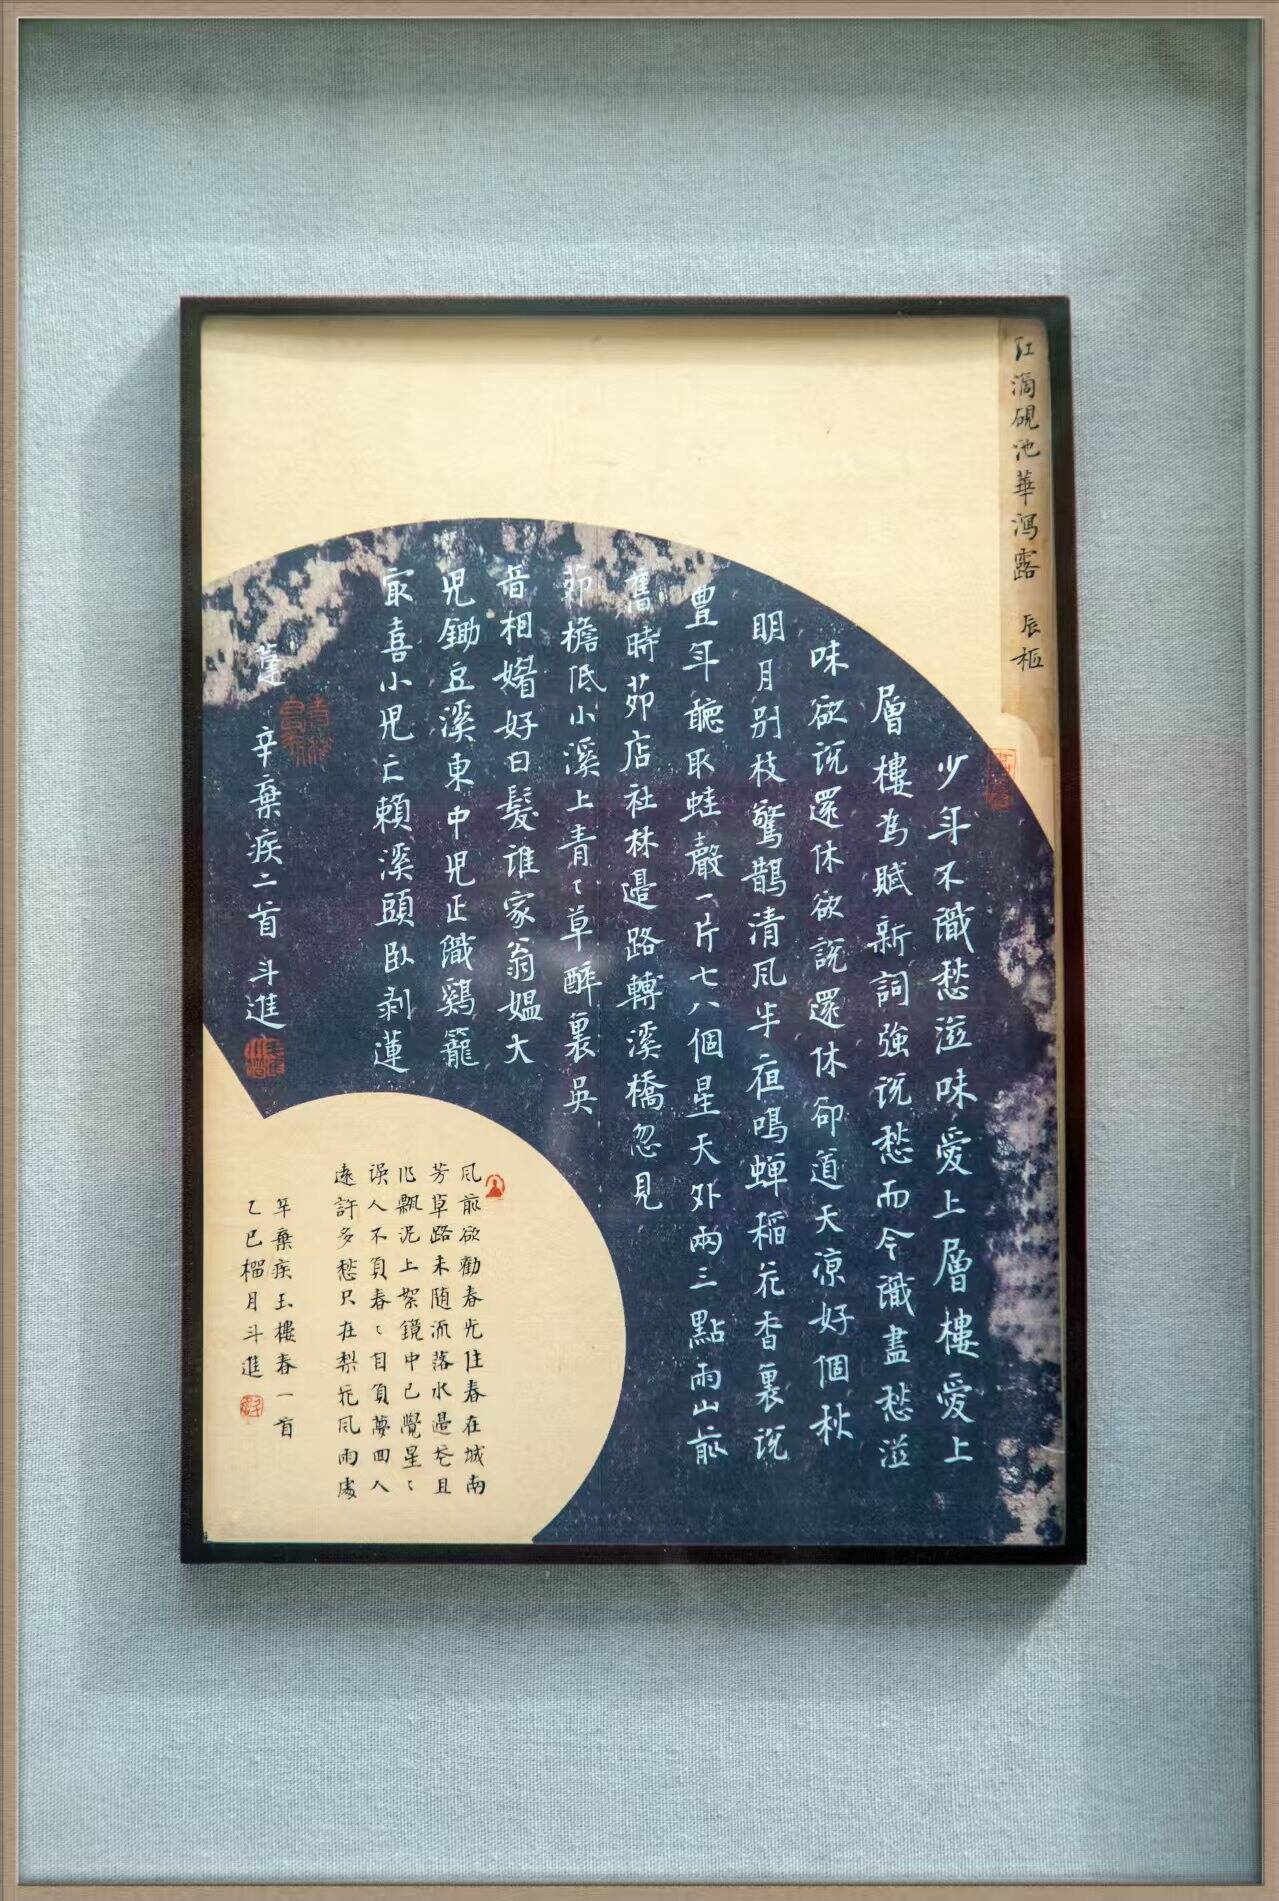 紅滴硯池華瀉露 辰樞
少年不識愁滋味愛上層樓愛上
層樓為賦新詞強説愁而今識盡愁滋
味欲説還休欲説還休卻道天涼好個秋
明月别枝驚鵲清風半夜鳴蟬稲花香裏説
豊年聽取蛙聲一片七八個星天外兩三點雨山前
舊時茆店社林邊路轉溪橋忽見
茆檐低小溪上青〻草醉裏吳
音相媚好白髮誰家翁媼大
兒鋤豆溪東中兒正織鷄籠
最喜小兒亡賴溪頭臥剥蓮
蓬 辛棄疾二首 斗進
風前欲勸春光住春在城南
芳草路未随流落水邊花且
作飄泥上絮鏡中已覺星〻
誤人不負春〻自負夢回人
遠許多愁只在梨花風雨處
辛棄疾玉樓春一首
乙巳榴月斗進